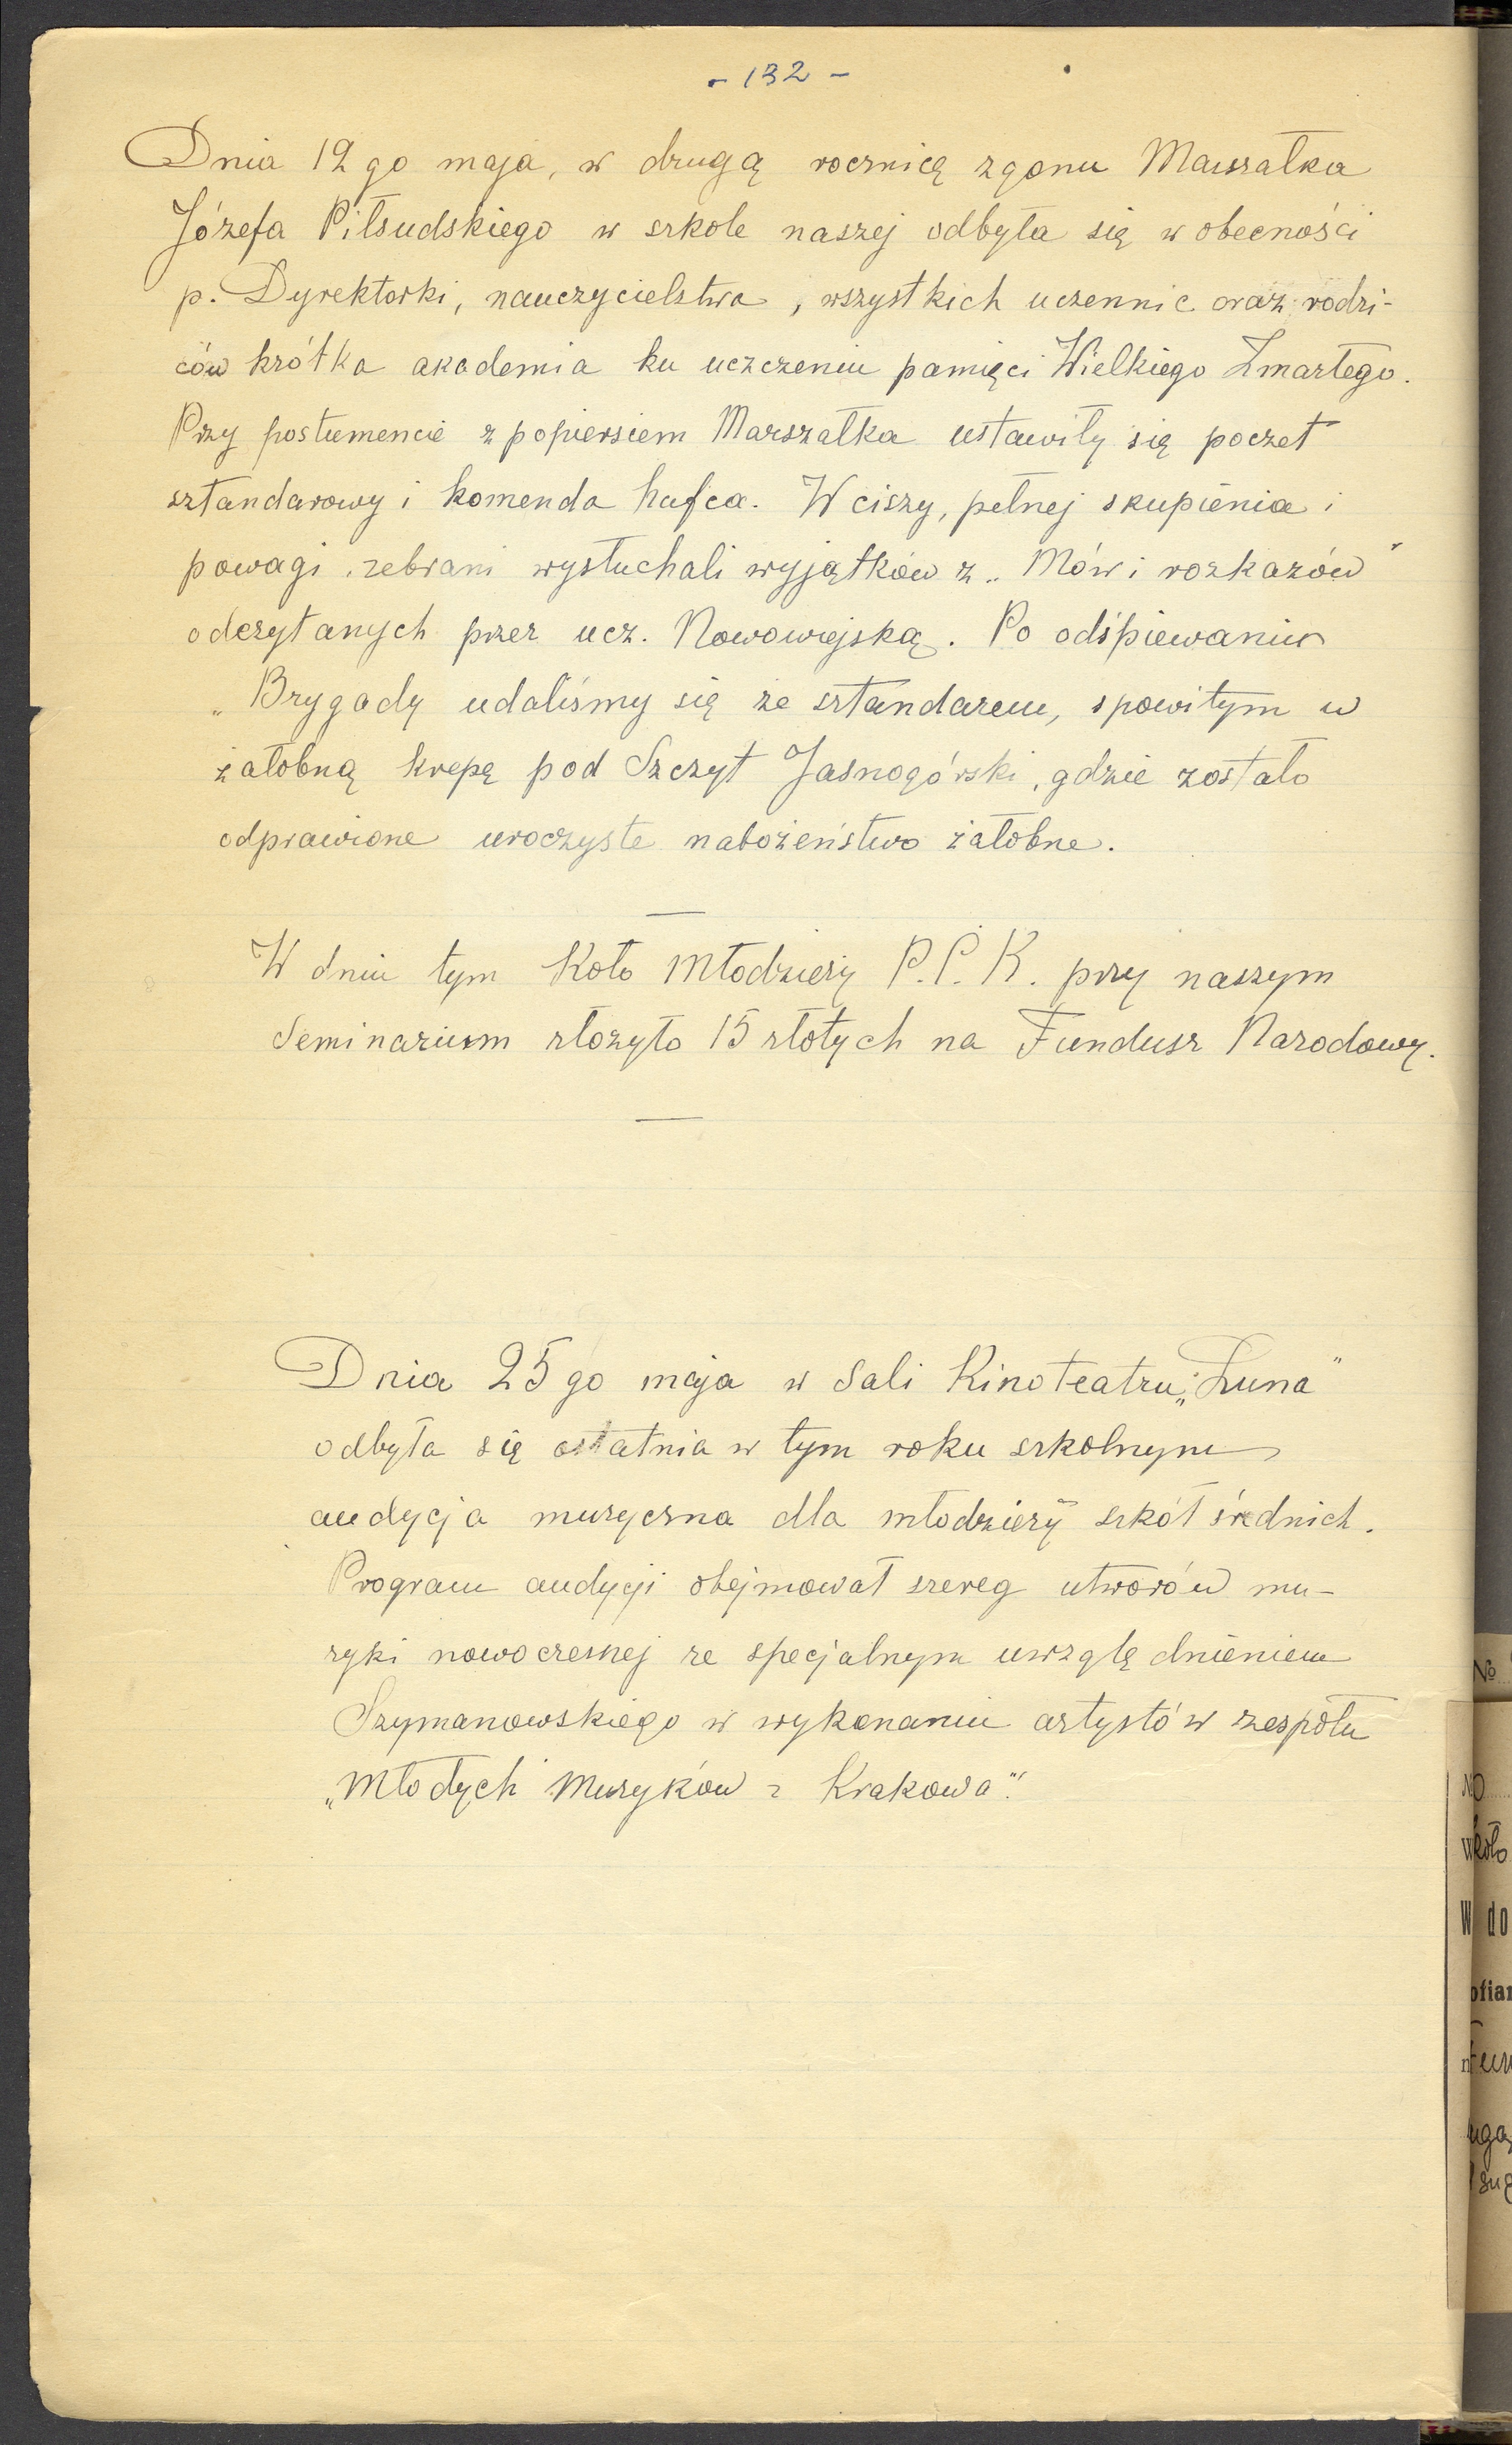 - 132 -
Dnia 12 go maja, w drugą rocznicę zgonu Marszałka
Józefa Piłsudskiego w szkole naszej odbyła się w obecności
p. Dyrektorki, nauczycielstwa, wszystkich uczennic oraz rodzi-
ców krótka akademia ku uczczeniu pamięci Wielkiego Zmarłego.
Przy postumencie z popiersiem Marszałka ustawiły się poczet
sztandarowy i komenda hufca. W ciszy, pełnej skupienia i
powagi zebrani wysłuchali wyjątków z „Mów i rozkazów"
odczytanych przez ucz. Nowowiejską. Po odśpiewaniu
„Brygady udaliśmy się ze sztandarem, spowitym w
żałobną krepę pod Szczyt Jasnogórski, gdzie zostało
odprawione uroczyste nabożeństwo żałobne.
W dniu tym Koło Młodzieży P.C.K. przy naszym
Seminarium złożyło 15 złotych na Fundusz Narodowy.
Dnia 25 go maja w Sali Kinoteatru „Luna"
odbyła się ostatnia w tym roku szkolnym
audycja muzyczna dla młodzieży szkół średnich.
Program audycji obejmował szereg utworów mu-
zyki nowoczesnej ze specjalnym uwzględnieniem
Szymanowskiego w wykonaniu artystów zespołu
„Młodych Muzyków z Krakowa".
№
W do